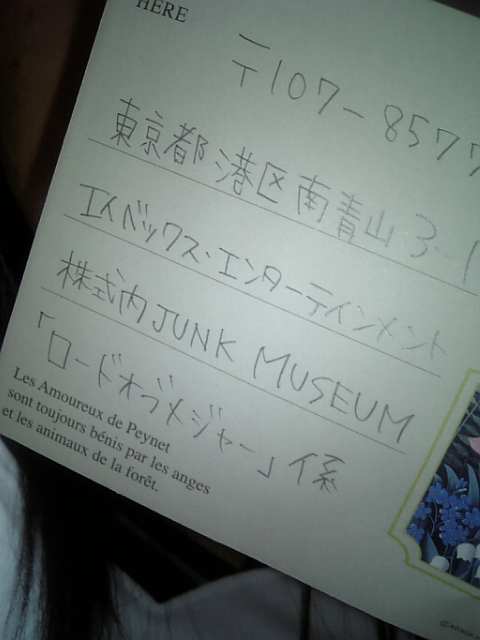 HERE
〒107-8577
東京都港区南青山3-1
エイベックス・エンターテインメント
株式内JUNK MUSEUM
「ロードオブメジャー」係
Les Amoureux de Peynet
sont toujours bénis par les anges
et les animaux de la forêt.